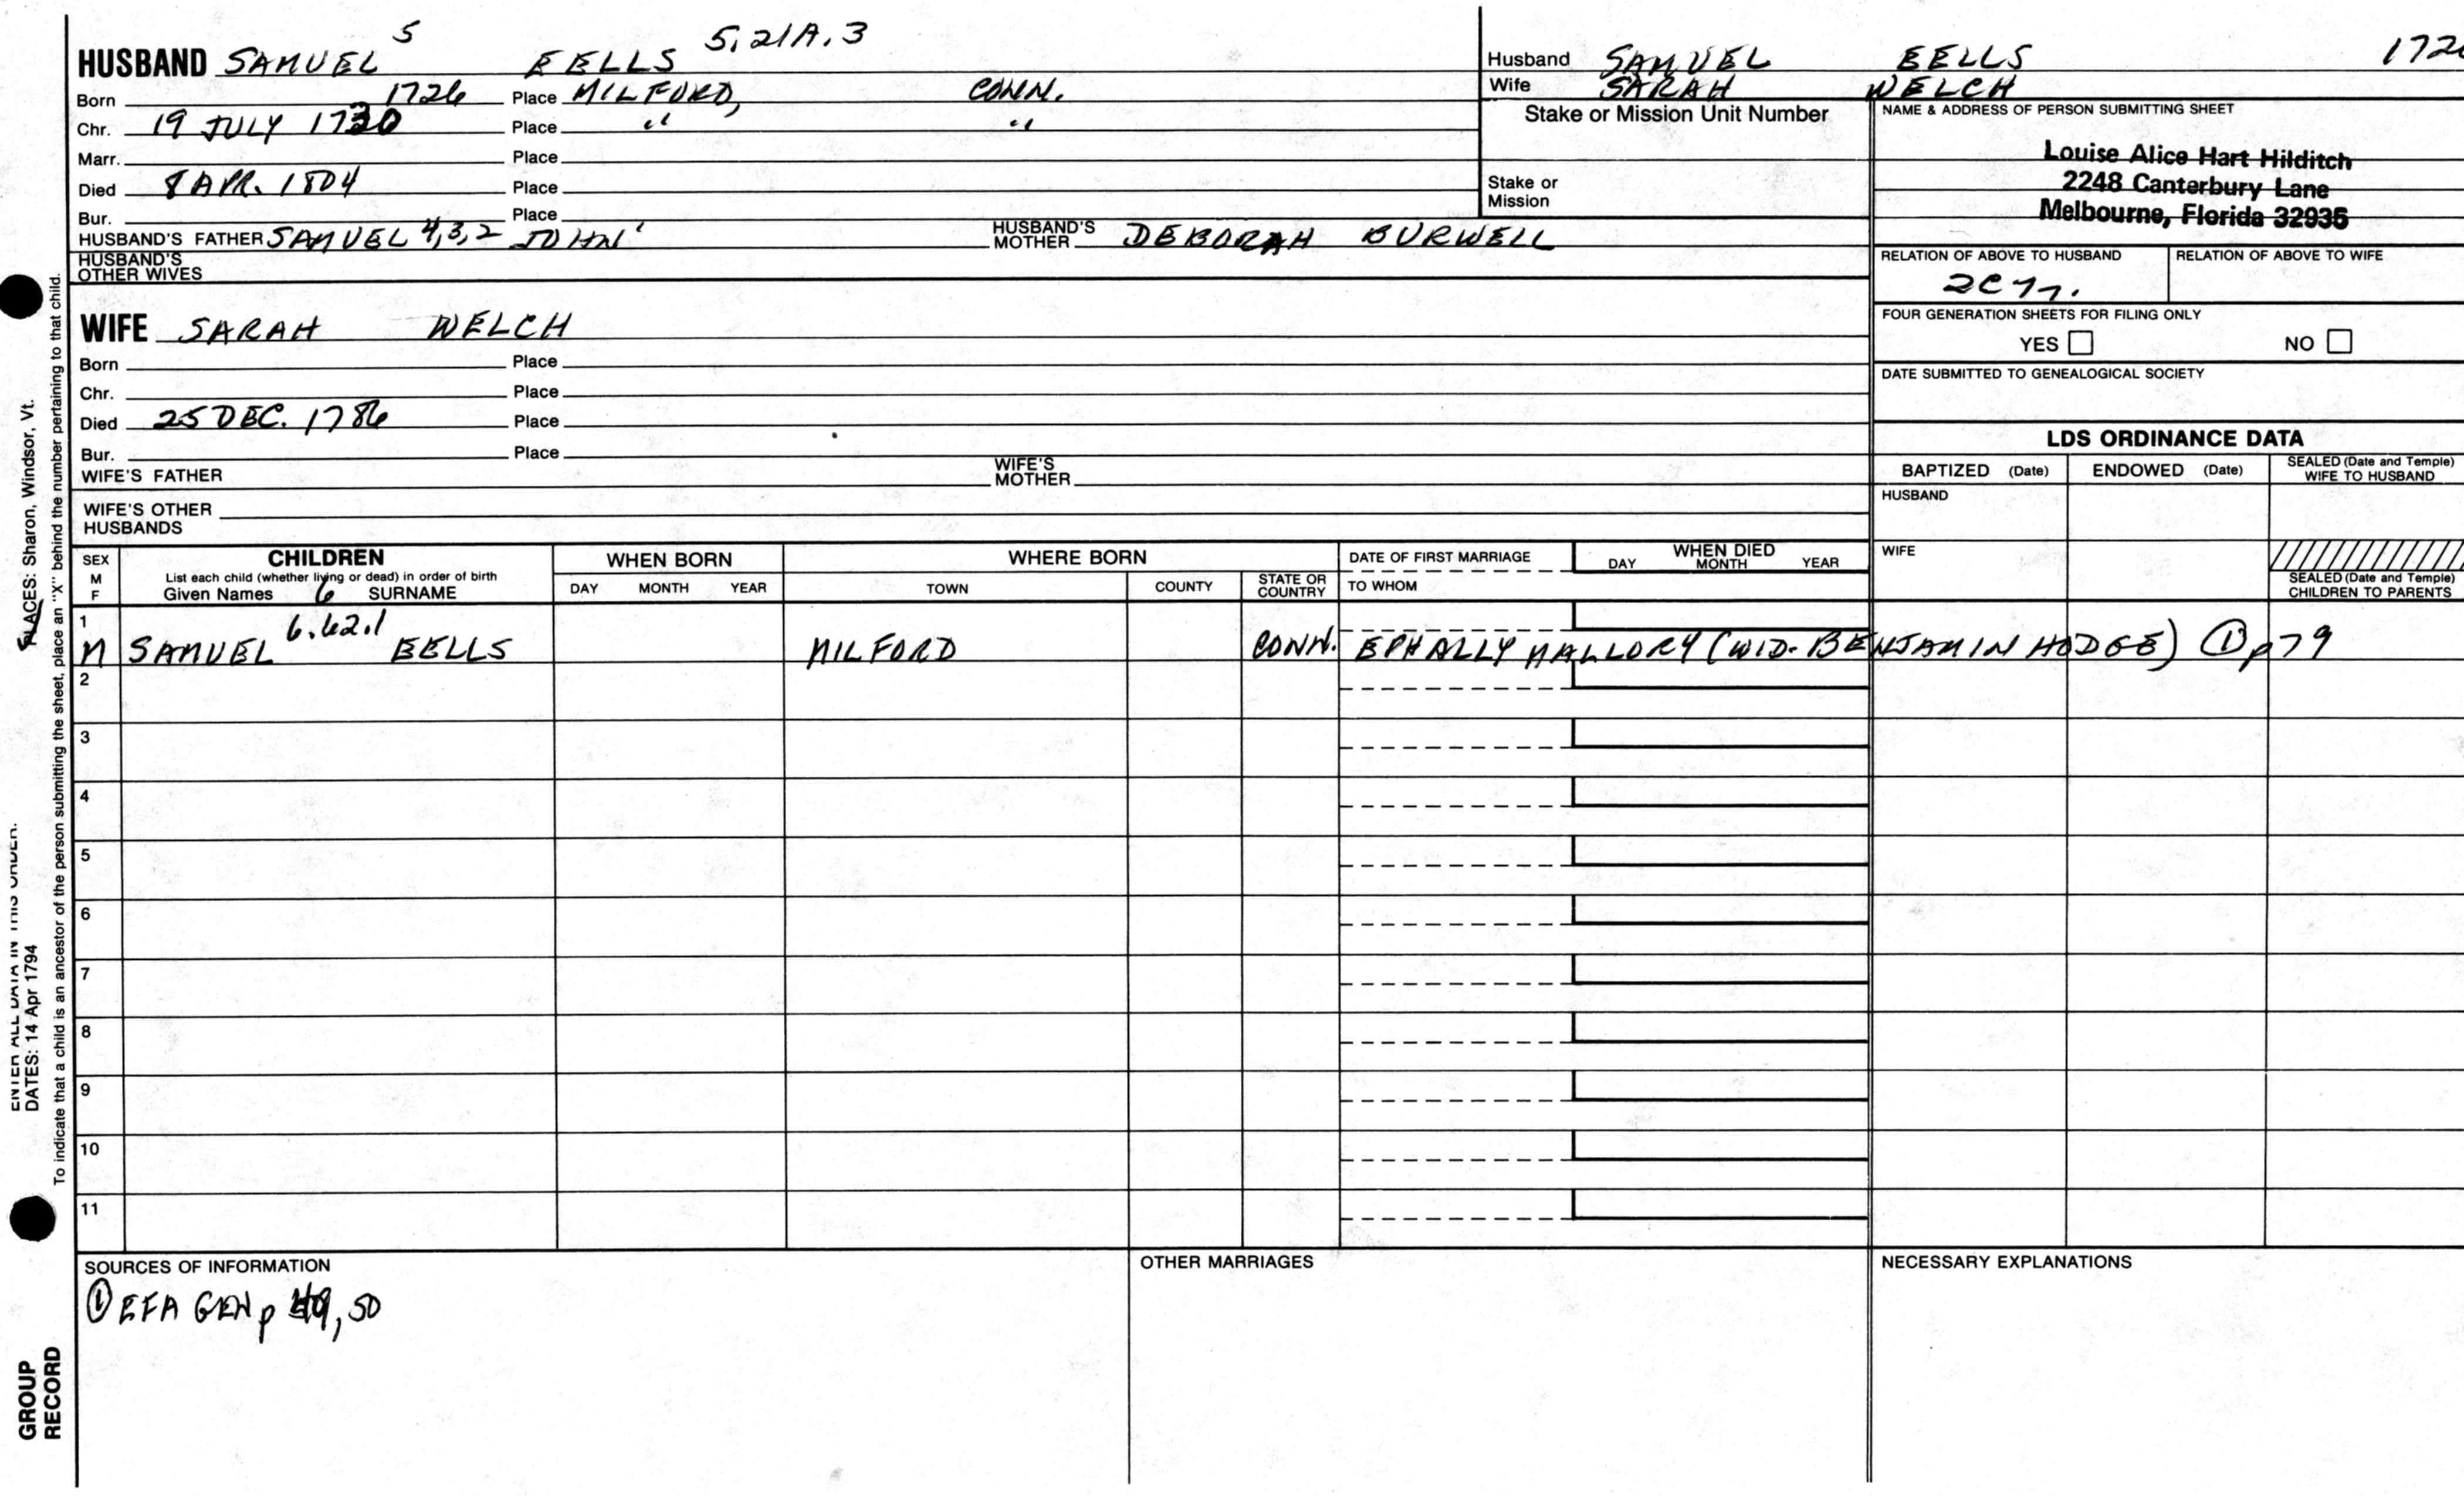 HUSBAND SAMUEL 5 EELLS 5.21A.3
Born 1726 Place MILFORD, CONN.
Chr. 19 JULY 1730 Place " "
Marr. Place
Died 8 APR. 1804 Place
Bur. Place
HUSBAND'S FATHER SAMUEL 4,3,2 JOHN 1 HUSBAND'S MOTHER DEBORAH BURWELL
HUSBAND'S OTHER WIVES
WIFE SARAH WELCH
Born Place
Chr. Place
Died 25 DEC. 1786 Place
Bur. Place
WIFE'S FATHER WIFE'S MOTHER
WIFE'S OTHER HUSBANDS
Husband SAMUEL EELLS
Wife SARAH WELCH
Stake or Mission Unit Number
Stake or Mission
NAME & ADDRESS OF PERSON SUBMITTING SHEET
Louise Alice Hart Hilditch
2248 Canterbury Lane
Melbourne, Florida 32935
RELATION OF ABOVE TO HUSBAND RELATION OF ABOVE TO WIFE
FOUR GENERATION SHEETS FOR FILING ONLY
YES NO
DATE SUBMITTED TO GENEALOGICAL SOCIETY
LDS ORDINANCE DATA
BAPTIZED (Date) ENDOWED (Date) SEALED (Date and Temple) WIFE TO HUSBAND
HUSBAND
WIFE
SEALED (Date and Temple) CHILDREN TO PARENTS
SEX M F
CHILDREN
List each child (whether living or dead) in order of birth
Given Names 6 SURNAME
WHEN BORN
DAY MONTH YEAR
WHERE BORN
TOWN COUNTY STATE OR COUNTRY
DATE OF FIRST MARRIAGE
TO WHOM
WHEN DIED
DAY MONTH YEAR
1
M SAMUEL 6.62.1 EELLS MILFORD CONN. EPHALLY MALLORY (WID. BENJAMIN HODGE) ① p79
2
3
4
5
6
7
8
9
10
11
SOURCES OF INFORMATION
① EFA GEN p 49, 50
OTHER MARRIAGES
NECESSARY EXPLANATIONS
PLACES: Sharon, Windsor, Vt.
To indicate that a child is an ancestor of the person submitting the sheet, place an "X" behind the number pertaining to that child.
ENTER ALL DATA IN THIS ORDER.
DATES: 14 Apr 1794
GROUP
RECORD